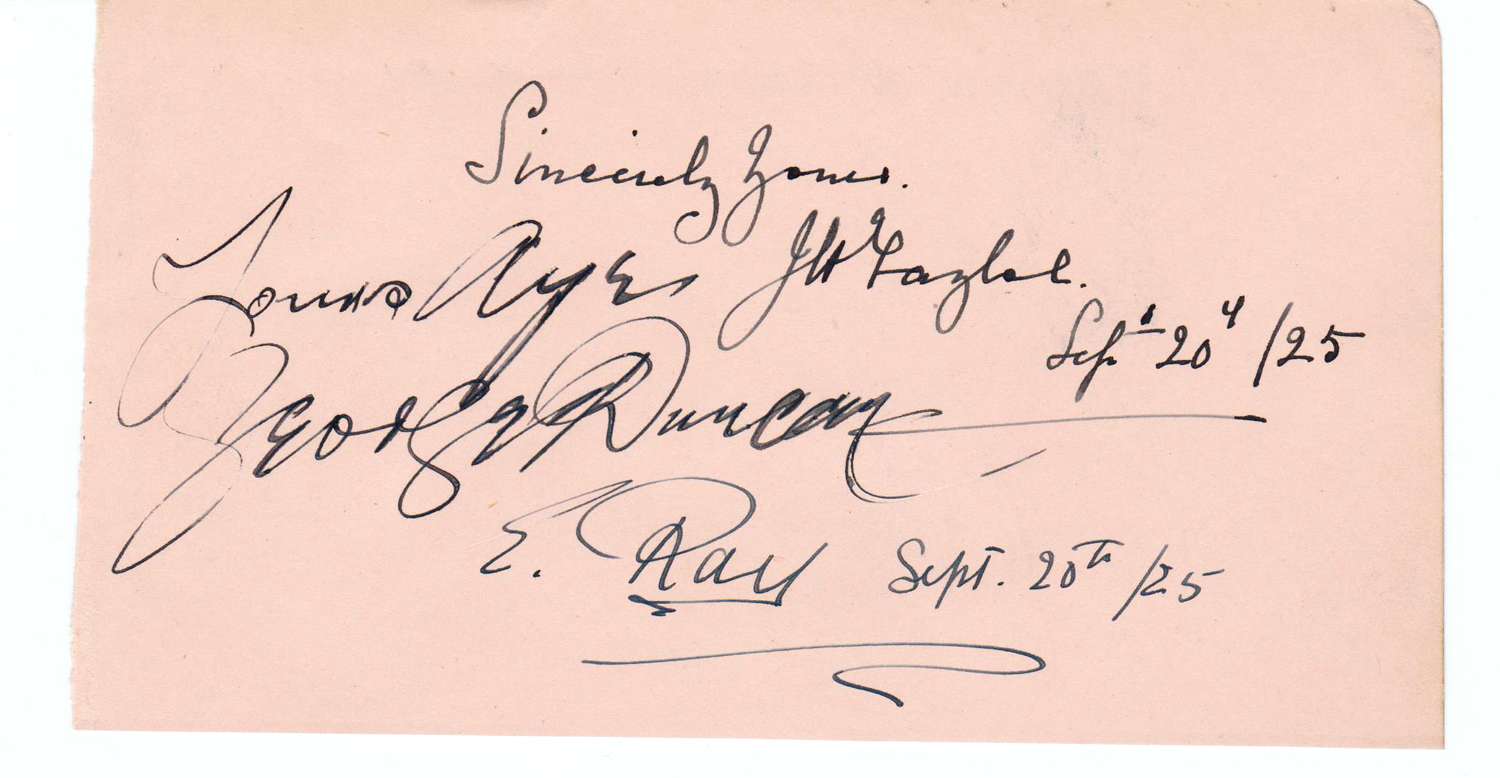 Sincerely Yours.
JH Taylor.
Sept 20th /25
Yours Aye
George Duncan
E. Ray Sept. 20th /25